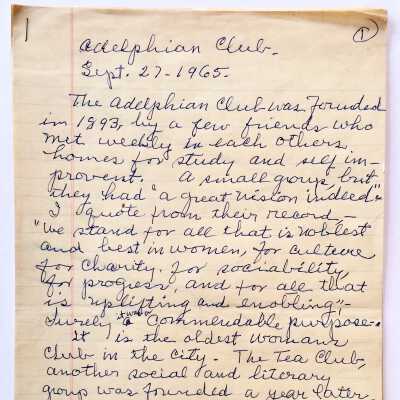 1
Adelphian Club.
Sept. 27-1965.
The Adelphian Club was founded
in 1893, by a few friends who
met weekly in each others
homes for study and self im-
provent. A small group, but
they had "a great vision indeed"
I quote from their record—
"we stand for all that is noblest
and best in women, for culture
for charity. for sociability,
for progress, and for all that
is uplifting and enobling";-
Surely it was a commendable purpose.
It is the oldest womans
club in the city. The Tea Club,
another social and literary
group was founded a year later,